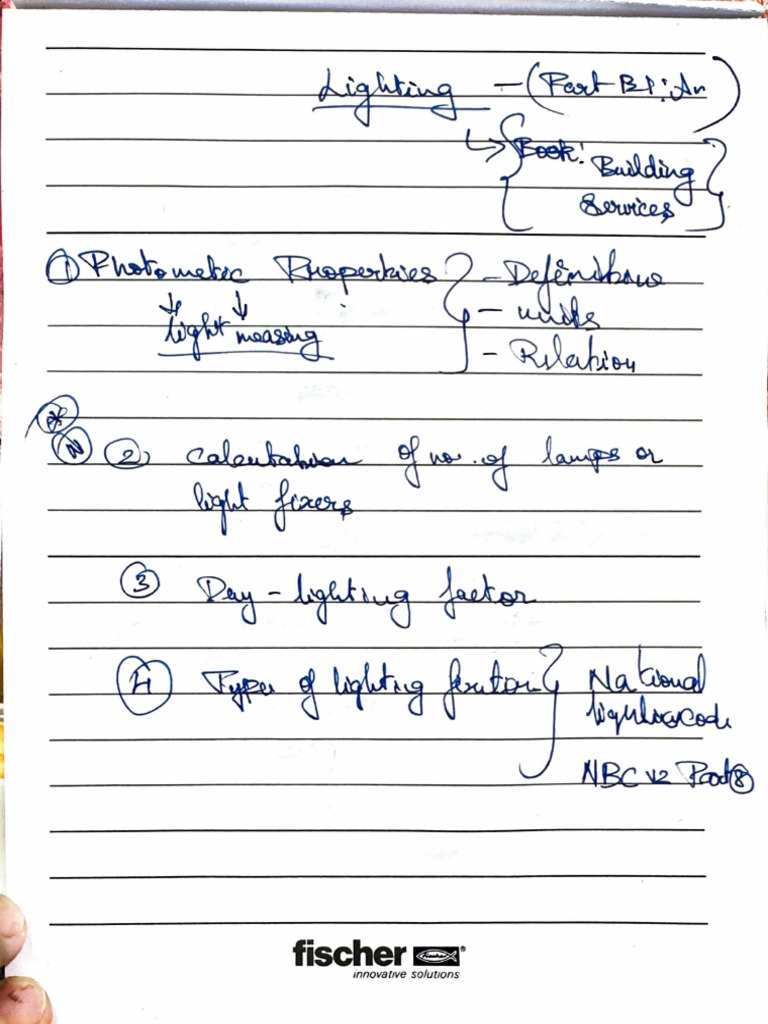 Lighting - (Part B1: Ar)
Book: Building
Services
① Photometric Properties - Definitions
light measing - units
- Relation
* N ② Calculation of no. of lamps or
light fixers
③ Day-lighting factor
④ Types of lighting National
lighting code
NBC V2 Part ⑧
fischer
innovative solutions